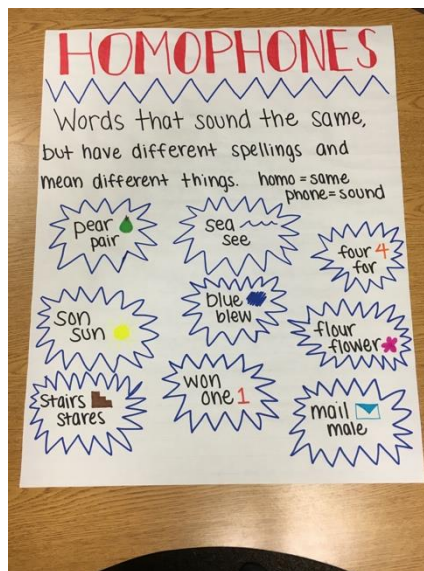 HOMOPHONES
Words that sound the same,
but have different spellings and
mean different things. homo = same
phone = sound
pear
pair
sea
see
four 4
for
son
sun
blue
blew
flour
flower
stairs
stares
won
one 1
mail
male